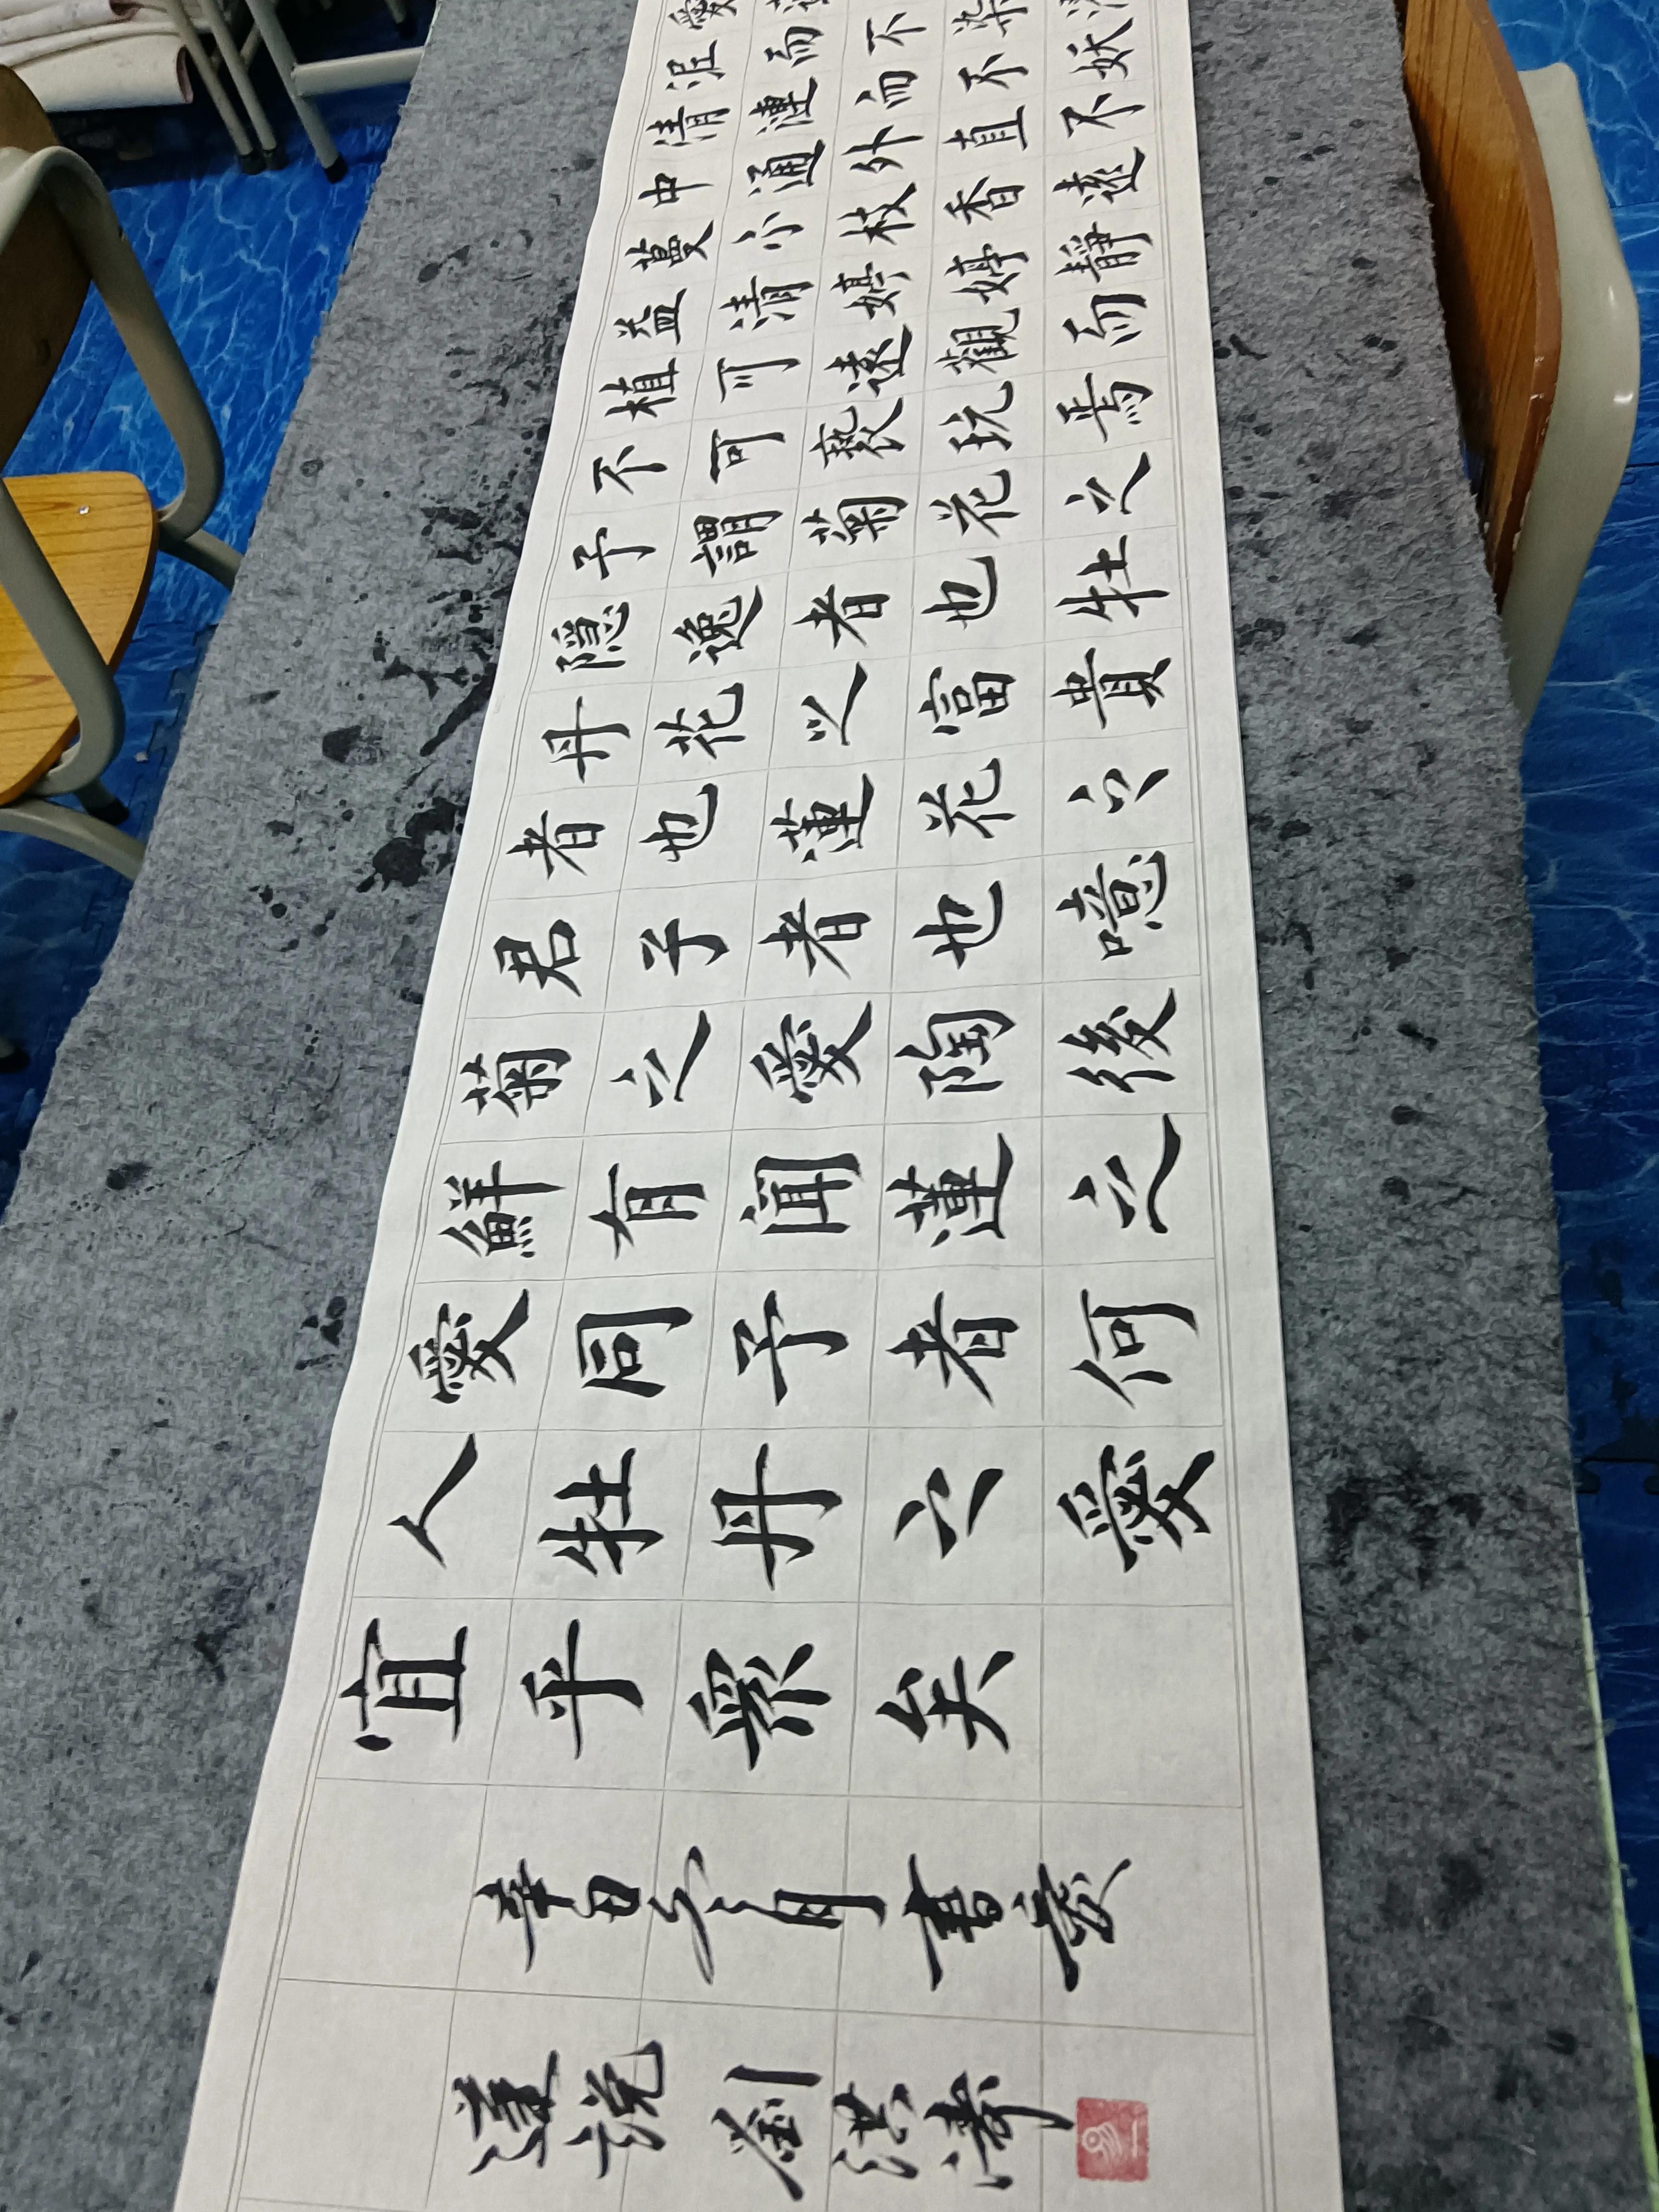 泥而不染濯
清漣而不妖
中通外直不
蔓不枝香遠
益清婷婷靜
植可遠觀而
不可褻玩焉
予謂菊花之
隱逸者也牡
丹花之富貴
者也蓮花之
君子者也噫
菊之愛陶後
鮮有聞蓮之
愛同予者何
人牡丹之愛
宜乎眾矣
辛丑冬月書愛
蓮說 劉洪濤